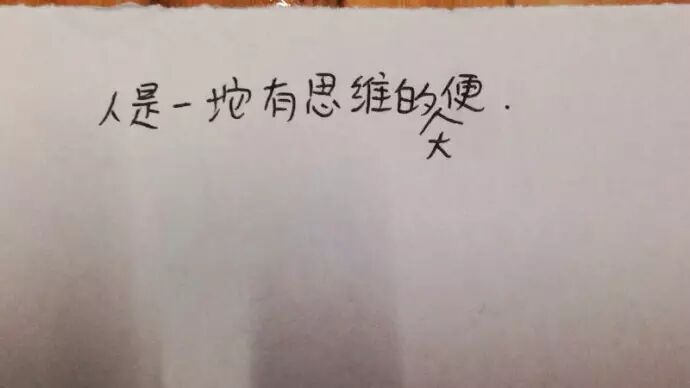 人是一坨有思维的大便.